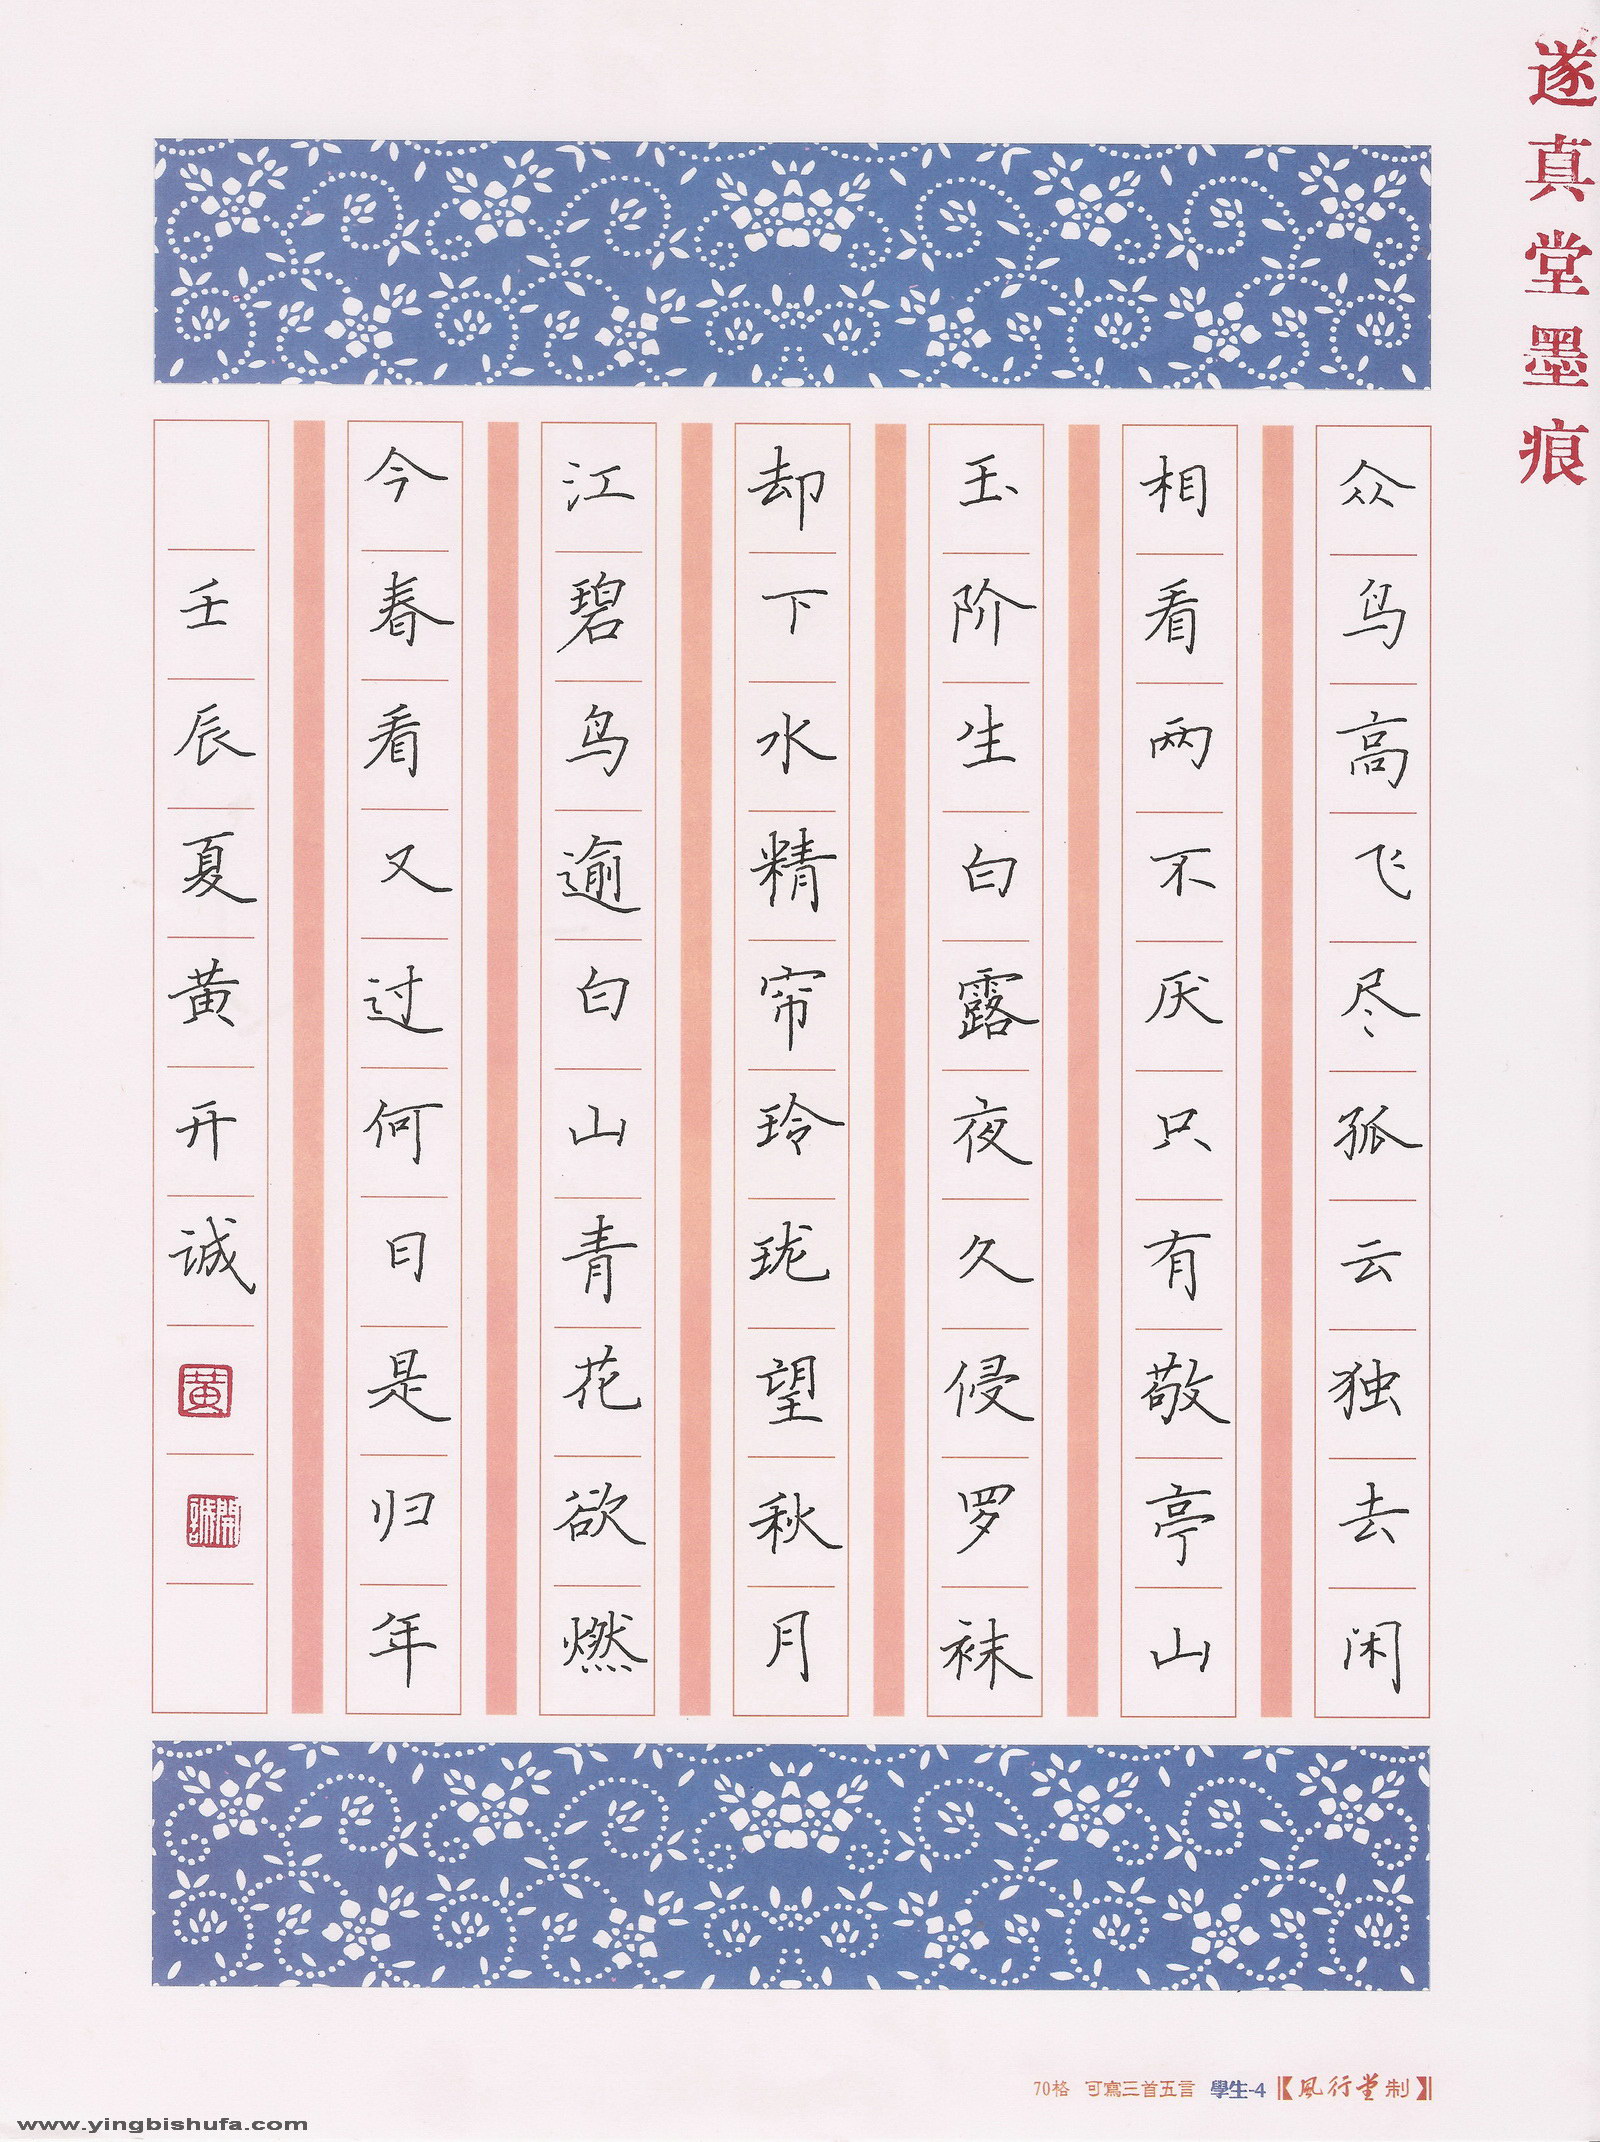 遂真堂墨痕
众鸟高飞尽孤云独去闲
相看两不厌只有敬亭山
玉阶生白露夜久侵罗袜
却下水精帘玲珑望秋月
江碧鸟逾白山青花欲燃
今春看又过何日是归年
壬辰夏黄开诚
黄
開誠
70格 可寫三首五言 學生-4【風行堂制】
www.yingbishufa.com